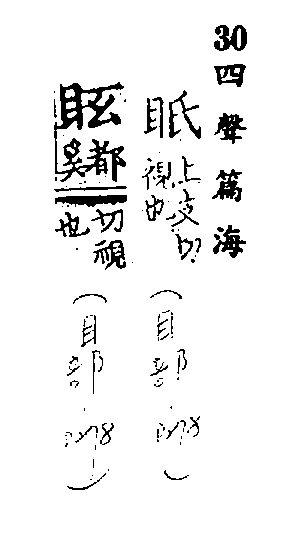 30四聲篇海
眂 上支切視也（目部
眩 都奚切視也（目部